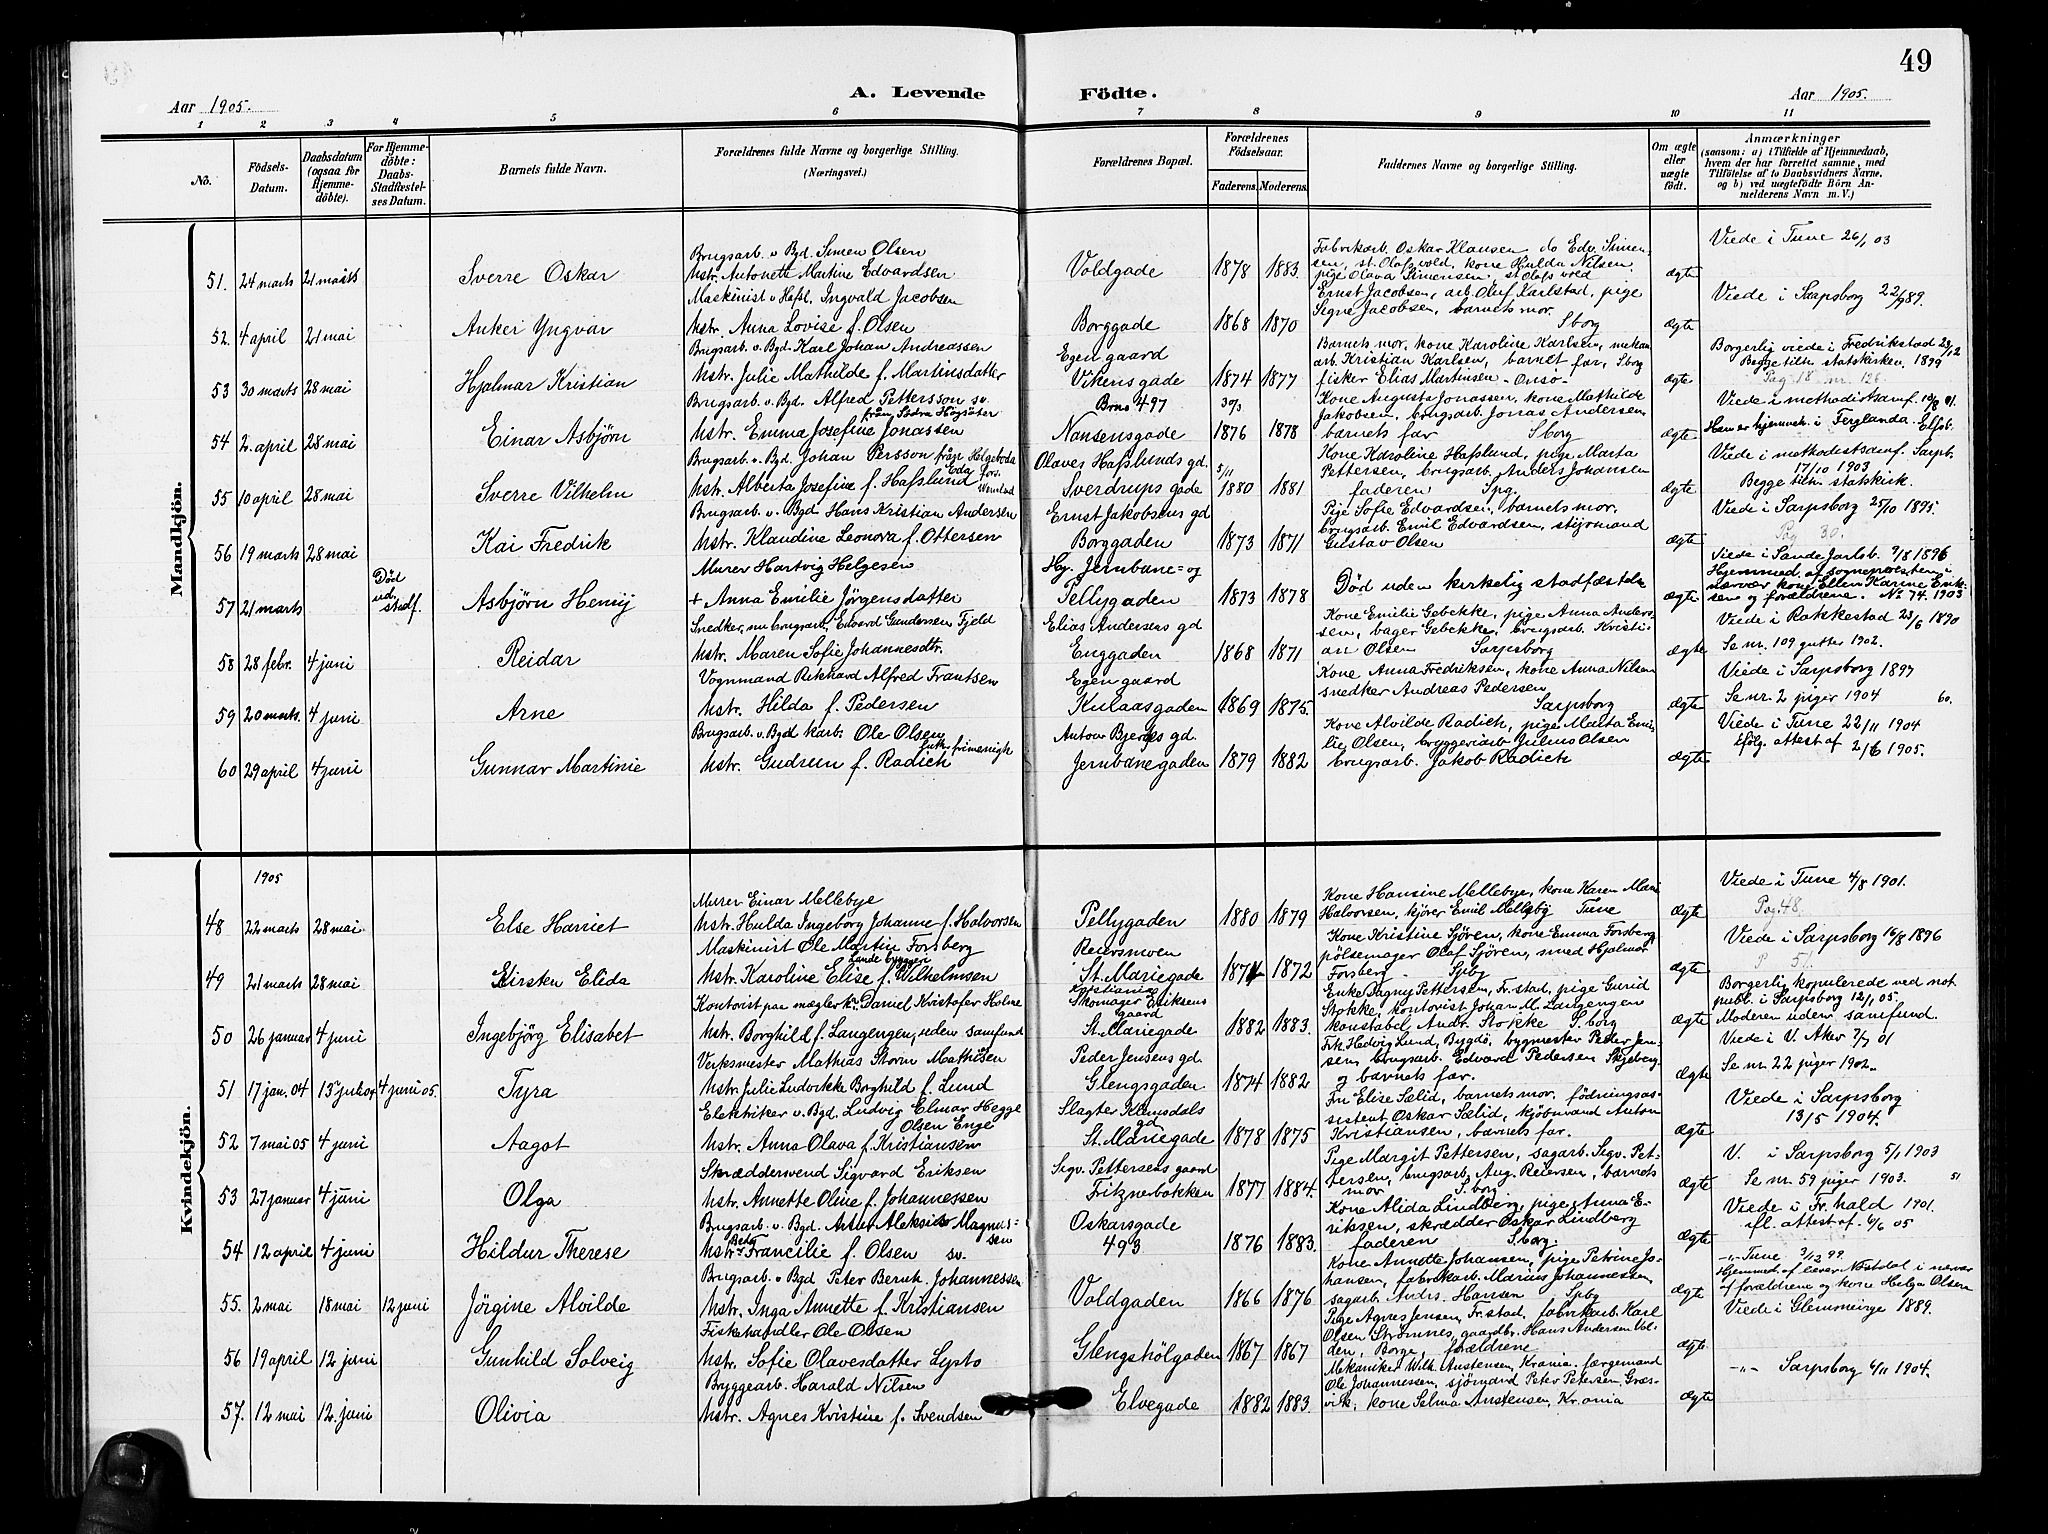 49
Aar 1905.
A. Levende Födte.
Aar 1905.
1 2 3 4 5 6 7 8 9 10 11
No.
Födsels-
Datum.
Daabsdatum
(ogsaa for
Hjemme-
döbte).
For Hjemme-
döbte:
Daabs-
Stadfæstel-
ses Datum.
Barnets fulde Navn.
Forældrenes fulde Navne og borgerlige Stilling.
(Næringsvei.)
Forældrenes Bopæl.
Forældrenes
Födselsaar.
Faderens. Moderens.
Faddernes Navne og borgerlige Stilling.
Om ægte
eller
uægte
födt.
Anmærkninger
(saasom: a) i Tilfælde af Hjemmedaab,
hvem der har forrettet samme, med
Tilföielse af to Daabsvidners Navne,
og b) ved uægtefödte Börn An-
melderens Navn m. V.)
Mandkjön.
51. 24 marts 21 maits
Sverre Oskar
Brugsarb. v. Bgd. Simen Olsen
Hstr. Antonette Martine Edvardsen
Voldgade
1878 1883.
Fabrikarb. Oskar Klausen, do Edv. Simen-
sen, st. Olafs vold, kone Hulda Nilsen,
pige Olava Simensen, st. Olafs vold
ægte
Viede i Tune 26/1 03
52. 4 april 21 mai
Anker Yngvar
Maskinist v. Hafsl. Ingvald Jacobsen
Hstr. Anna Lovise f. Olsen
Borggade
1868 1870
Ernst Jacobsen, arb. Oluf Karlstad, pige
Signe Jacobsen, barnets mor.
Sborg
ægte
Viede i Sarpsborg 22/9 89.
53 30 marts 28 mai
Hjalmar Kristian
Brugsarb. v. Bgd. Karl Johan Andreassen
Hstr. Julie Mathilde f. Martinsdatter
Egen gaard
Vikensgade
1874 1877
Barnets mor, kone Karoline Karlsen, mekan.
arb. Kristian Karlsen, barnet far, Sborg
fisker Elias Martinsen - Onsø -
ægte
Borgerlig viede i Fredrikstad 23/12
Begge tilh. statskirken. 1899
Pag. 18 nr. 126.
54 2 april 28 mai
Einar Asbjørn
Brugsarb. v. Bgd. Alfred Pettersson sv.
från Södra Högsäter
Hstr. Emma Josefine Jonassen
Brns 497
Nansensgade
30/3
1876 1878
Kone Augusta Jonassen, kone Mathilde
Jakobsen, brugsarb. Jonas Andersen
barnets far Sborg
ægte
Viede i methodistsamf. 10/8 01.
Han er hjemveh. i Ferglanda. Elfsb.
55 10 april 28 mai
Sverre Vilhelm
Brugsarb. v. Bgd. Johan Persson från Helgeboda
Eda fors.
Hstr. Alberta Josefine f. Hafslund
Olaves Hafslunds gd.
Sverdrups gade
5/11
1880 1881
Kone Karoline Hafslund, pige Marta
Pettersen, brugsarb. Anders Johansen
faderen Spg.
ægte
Viede i methodistsamf. Sarpsb.
17/10 1903
Begge tilh. statskirk.
56 19 marts 28 mai
Kai Fredrik
Brugsarb. v. Bgd Hans Kristian Andersen
Hstr. Klaudine Leonora f. Ottersen
Ernst Jakobsens gd
Borggaden
1873 1871
Pige Sofie Edvardsen, barnets mor.
brugsarb. Emil Edvardsen, stijrmand
Gustav Olsen
ægte
Viede i Sarpsborg 25/10 1895.
Pag 30.
57 21 marts
Død
ud.
stadf.
Asbjørn Henry
Murer Hartvig Helgesen
+ Anna Emilie Jørgensdatter
Hj. Jernbane= og
Pellygaden
1873 1878
Død uden kirkelig stadfæstelse
ægte
Viede i Sande Jarlsb. 9/8 1896
Hjemmed. af sognepresten i
nærvær kone Ellen Karine Erik-
sen og forældrene. No 74. 1903
58 28 febr. 4 juni
Reidar
Snedker, nu brugsarb. Edvard Gundersen Fjeld
Hstr. Maren Sofie Johannesdtr.
Elias Andersens gd
Enggaden
1868 1871
Kone Emilie Gebekke, pige Anna Anders-
sen, bager Gebekke, brugsarb. Kristi-
an Olsen Sarpsborg
ægte
Viede i Rakkestad 23/6 1890
Se nr. 109 gutter 1902.
59 20 marts. 4 juni
Arne
Vognmand Rikhard Alfred Frantsen
Hstr. Hilda f. Pedersen
Egen gaard
Kulaasgaden
1869 1875.
Kone Anna Fredriksen, kone Anna Nilsen
snedker Andreas Pedersen
Sarpsborg
ægte
Viede i Sarpsborg 1897
Se nr. 2 piger 1904 60.
60 29 april 4 juni
Gunnar Martinie
Brugsarb. v. Bgd karb. Ole Olsen
luth. frimenigh
Hstr. Gudrun f. Radich
Anton Bjerges gd.
Jernbanegaden
1879 1882
Kone Alvilde Radich, pige Marta Emi-
lie Olsen, bryggeriarb Julius Olsen
brugsarb. Jakob Radich
ægte
Viede i Tune 22/11 1904
Efølg. attest af 2/6 1905.
Kvindekjön.
1905
48 22 marts 28 mai
Else Harriet
Murer Einar Mellebye
Hstr. Hulda Ingeborg Johanne f. Halvorsen
Pellygaden
1880 1879
Kone Hansine Mellebye, kone Karen Marie
Halvorsen, kjører Emil Mellebÿ Tune
ægte
Viede i Tune 4/8 1901.
Pag. 48
49 21 marts 28 mai
Kirsten Elida
Maskinist Ole Martin Forsberg
Lande byggeri
Hstr. Karoline Elise f. Wilhelmsen
Reiersmoen
St. Mariegade
1871 1872
Kone Kristine Sjøren, kone Emma Forsberg
pølsemager Olaf Sjøren, smed Hjalmar
Forsberg - Spbg
ægte
Viede i Sarpsborg 16/8 1896
P 51.
50 26 januar 4 juni
Ingebjørg Elisabet
Kontorist paa mægler kr. Daniel Kristofer Holme
Hstr. Borghild f. Langengen, uden samfund
Kristiania
Skomager Eriksens
gaard
St. Mariegade
1882 1883.
Enke Dagny Pettersen, Fr.stad, pige Gurid
Stokke, kontorist Johan M. Langengen
konstabel Andr. Stokke S.borg
ægte
Borgerlig kopulerede ved not
publ. i Sarpsborg 12/1 05.
Moderen uden samfund.
51 17 jan. 04 13 juli 04 4 juni 05.
Tyra
Verksmester Mathias Storm Mathisen
Hstr. Julie Ludvikke Borghild f. Lund
Peder Jensens gd.
Glengsgaden
1874 1882
Frk. Hedvig Lund, Bygdø, bygmester Peder Jen-
sen, brugsarb. Edvard Pedersen Skjeberg
og barnets far.
ægte
Viede i V. Aker 7/7 01
Se nr. 22 piger 1902.
52 7 mai 05 4 juni
Aagot
Elektriker v. Bgd. Ludvig Elmar Hegge
Olsen Enge
Hstr. Anna Olava f. Kristiansen
Slagter Klemsdals
gd
St. Mariegade
1878 1875
Fru Elise Sælid, barnets mor, fødningsas-
sistent Oskar Sælid, kjøbmand Anton
Kristiansen, barnets far.
ægte
Viede i Sarpsborg
13/5 1904.
53 27 januar 4 juni
Olga
Skræddersvend Sigvard Eriksen
Hstr. Annette Oline f. Johannessen
Sigv. Pettersens gaard
Fritznerbakken
1877 1884.
Pige Margit Pettersen, sagarb. Sigv. Pet-
tersen, brugsarb. Aug. Reiersen, barnets
mor S.borg
ægte
V. i Sarpsborg 5/1 1903
Se nr. 59 piger 1903. 51
54 12 april 4 juni
Hildur Therese
Brugsarb. v. Bgd. Artur Aleksius Magnus=
sen
Berta
Hstr. Francilie f. Olsen sv.
Oskarsgade
493
1876 1883.
Kone Alida Lindberg, pige Anna E-
riksen, skrædder Oskar Lindberg
faderen S.borg.
ægte
Viede i Fr.hald 1901.
fl. attest af. 6/6 05
55. 2 mai 18 mai 12 juni
Jørgine Alvilde
Brugsarb. v Bgd Peter Bernh. Johannessen
Hstr. Inga Annette f. Kristiansen
Voldgaden
1866 1876
Kone Annette Johansen, pige Petrine Jo-
hansen, fabrikarb. Marius Johannessen
sagarb. Andrs. Hansen Spbg
ægte
-"- Tune 3/12 99.
Hjemmed. af lærer Nøstdal i nærvær
af forældrene og kone Helga Olsen
56 19 april 12 juni
Gunhild Solveig
Fiskehandler Ole Olsen
Hstr. Sofie Olavesdatter Lysto
Glengshølgaden
1867 1867
Pige Agnes Jensen, Fr.stad, fabrikarb. Karl
Olsen Strømnes, gaardbr. Hans Andersen Vol-
den, Borge, forældrene
ægte
Viede i Glemminge 1889.
57. 12 mai 12. juni
Olivia
Bryggearb. Harald Nilsen
Hstr. Agnes Kristine f. Svendsen
Elvegade
1882 1883.
Mekaniker Wilh. Austensen, Krania, færgemand
Ole Johannessen, sjømand Peter Petersen, Græs-
vik, kone Selma Austensen, Krania
ægte
-"- Sarpsborg 6/11 1904.